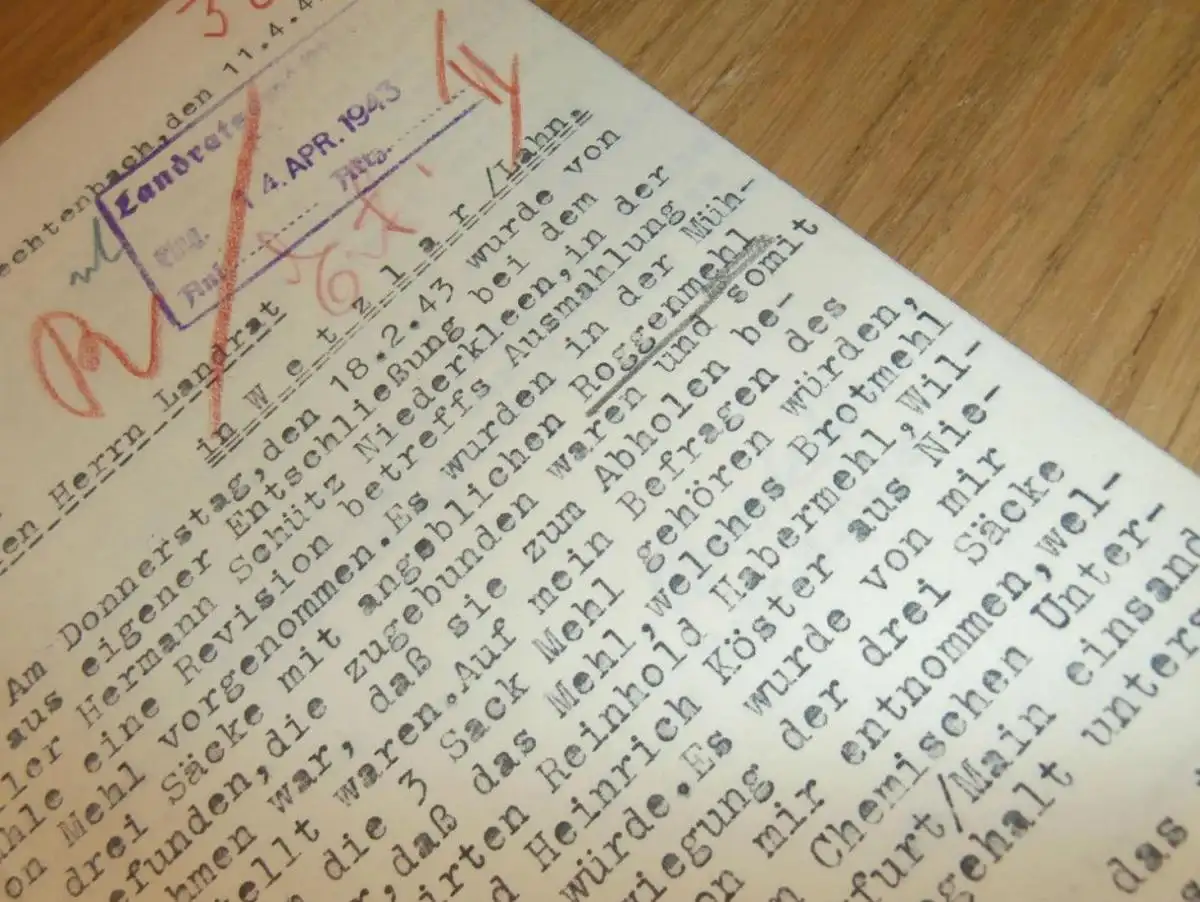 echtenbach, den 11.4.4
Landrats
14. APR. 1943
Abtg.
Herrn Landrat
in W e t z l a r /Lahn.
Am Donnerstag, den 18.2.43 wurde von
aus eigener Entschließung bei dem
ller Hermann Schütz Niederkleen, in der
hle eine Revision betreffs Ausmahlung
on Mehl vorgenommen. Es wurden in der Müh-
drei Säcke mit angeblichen Roggenmehl
efunden, die zugebunden waren und somit
hmen war, daß sie zum Abholen be-
tellt waren. Auf mein Befragen des
die 3 Sack Mehl gehören würden,
r, daß das Mehl, welches Brotmehl
irten Reinhold Habermehl, Wil-
d Heinrich Köster aus Nie-
würde. Es wurde von mir
wiegung der drei Säcke
on mir entnommen, wel-
Chemischen Unter-
furt/Main einsand
gehalt unters
das